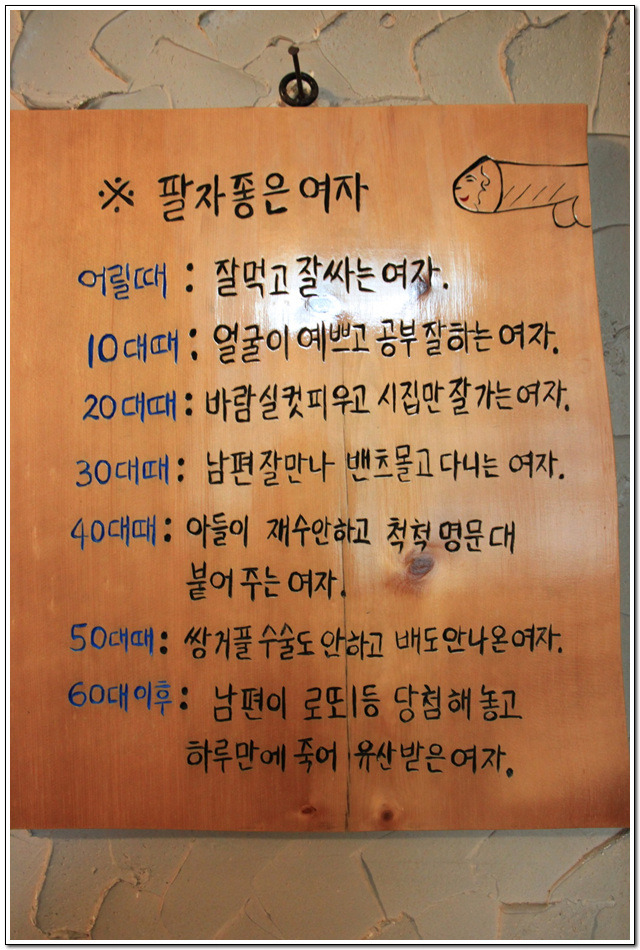 ※ 팔자좋은여자
어릴때 : 잘먹고 잘싸는여자.
10대때 : 얼굴이 예쁘고 공부잘하는여자.
20대때 : 바람실컷피우고 시집만잘가는여자.
30대때 : 남편잘만나 밴츠몰고다니는 여자.
40대때 : 아들이 재수안하고 척척명문대
붙어주는여자.
50대때 : 쌍거플수술도안하고 배도안나온여자.
60대이후 : 남편이 로또1등 당첨해놓고
하루만에죽어 유산받은여자.